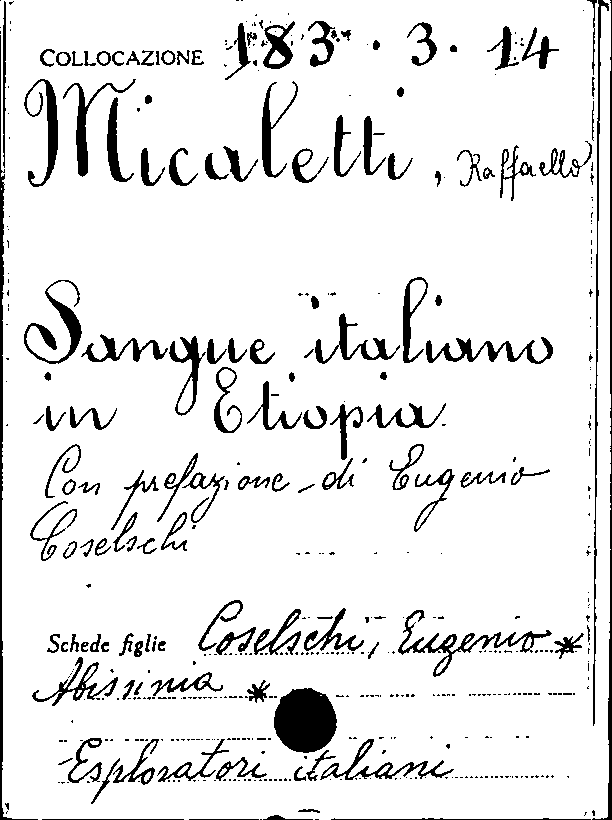 COLLOCAZIONE 183 · 3 · 14
Micaletti, Raffaello
Sangue italiano
in Etiopia.
Con prefazione di Eugenio
Coselschi
Schede figlie Coselschi, Eugenio *
Abissinia *
Esploratori italiani